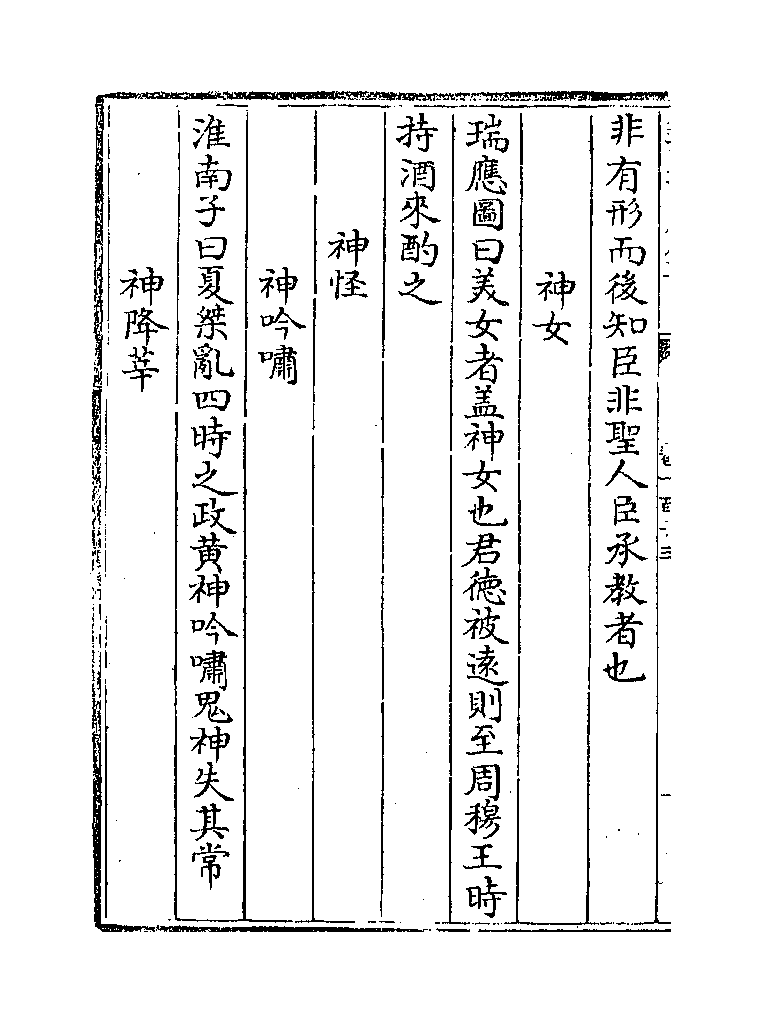 非有形而後知臣非聖人臣承教者也
神女
瑞應圖曰美女者盖神女也君徳被逺則至周穆王時
持酒來酌之
神怪
神吟嘯
淮南子曰夏桀亂四時之政黄神吟嘯鬼神失其常
神降莘